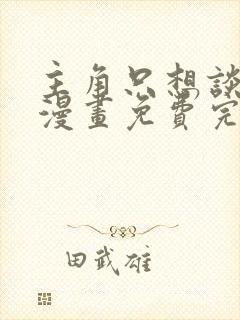 主角只想談
漫畫免費完
田武雄